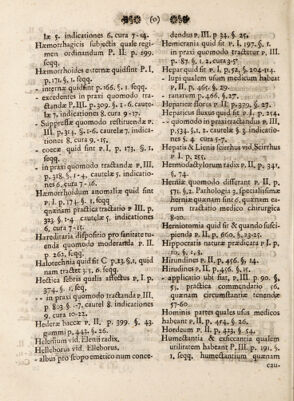 (o)
læ 5. indicationes 6. cura 7-14.
Hæmorrhagicis subjectis quale regi-
men ordinandum P. II. p. 299.
seqq.
Hæmorrhoides externæ quidsint P. I,
p. 171, §. 1. seqq.
- internæ quidsint p. 166. §. 1. seqq.
- excedentes in praxi quomodo tra-
ctandæ P. III. p. 309. §. 1-6. caute-
læ 7. indicationes 8. cura 9-17.
- Suppressæ quomodo restituendæ P.
III. p. 314. §. 1-6. cautelæ 7. indica-
tiones 8. cura 9, -15.
- coecæ quid sint P. I, p. 173, §. 1.
seqq.
- in praxi quomodo tractandæ P. III.
p. 318. §. 1-4. cautelæ 5. indicatio-
nes 6, cura 7-16.
Hæmorrhoidum anomaliæ quid sint
P. I. p. 174. §. 1. seqq
quænam practica tractatio P. III. p,
323 §. 1-4 cautelæ 5. indicationes
6, cura 7-15
Hæreditaria dispositio pro sanitate tu-
enda quomodo moderanda P. II.
p 262, seqq.
Halotechnia quid sit C p.23.§.1, quid
nam tractet §.1, 6. seqq.
Hectica febris qualis affectus p, I. p.
374, §. 1, seq,
-- in praxi quomodo tractanda P III,
p 803 §. -7. cautel 8. indicationes
9, cura 10-22.
Hederæ baccæ P. II, p. 399. §. 43.
gummi p, 442. §. 26.
Helenium vid. Elenii radix,
Helleborus vid. Elleborus,
- albus pro scopo emetico num conce-
dendus P. III, p 34. §. 25.
Hemicrania quid sit P. I, p. 197. §, 1.
- in praxi quomodo tractetur P. III,
p. 87. §. 1. 2. cura 3-5
Hepar quid sit P, I, p, 52, §. 204-214.
- lupi qualem usum medicum habeat
P, II, p, 465. §. 29.
- ranarum p,466. §. 27.
Hepaticæ flores P. II. p.379. §. 27.
Hepaticus fluxus quid sit P, I, p. 254.
- quomodo in praxi tractandus P, III,
p.534. §.1. 2. cautelæ §. 3 indicatio-
nes §. 4. cura 5-7.
Hepatis & Lienis scirrhus vid. Scirrhus
P. I. p, 255.
Hermodactylorum radix P, II, p, 341,
§. 74.
Herniæ quomodo differant P. II. p,
571. §. 2. Pathologia 3. specialissimæ
herniæ quænam sint 6, quænam ea-
rum tractatio medico chirurgica
8-20.
Herniotomia quid sit & quando susci-
pienda P. II, p, 660, §. 23-25.
Hippocratis naturæ prædicata P I, p.
10, §, 1-3,
Hirundines P, II, p, 456. §. 14.
Hirudines P, II, p.456. §. 15.
- applicatio ubi fiat, P, III. p 90. §,
55, practica commendatio 56,
quænam circumstantiæ tenendæ
57-60.
Hominis partes quales usus medicos
habeant P, II, p. 454. §. 26.
Hordeum P. II. p. 423, §. 54.
Humectantia & exsiccantia qualem
utilitatem habeant P, III, p. 191. §.
1, seqq, humectantium quænam
cau-